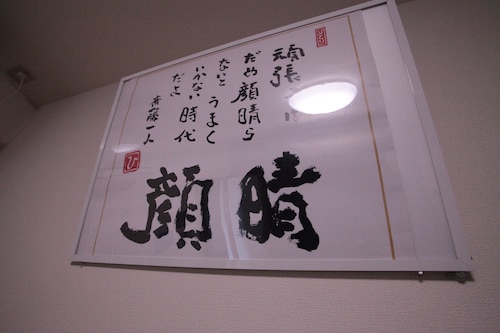 頑張
だめ顔晴ら
ないとうまく
いかない時代
だよ
斎藤一人
顔晴